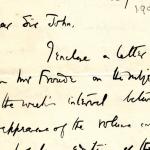 190
Dear Sir John,
I enclose a letter
Mr Froude on the subje
the week's interval betwe
appearance of the volume